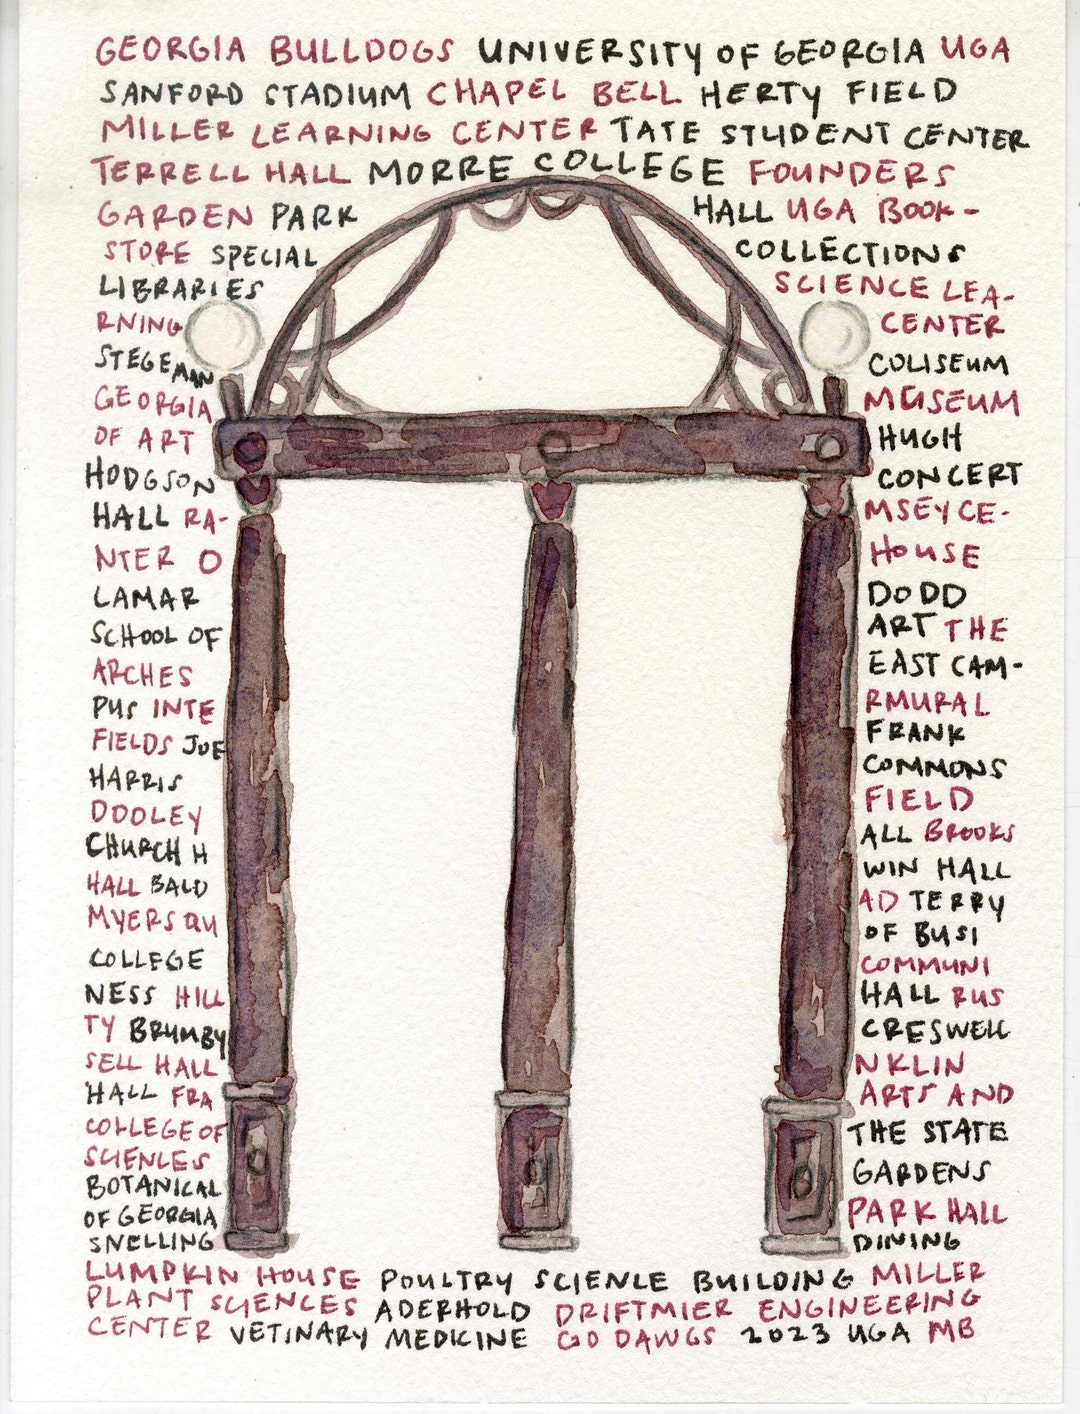 GEORGIA BULLDOGS UNIVERSITY OF GEORGIA UGA
SANFORD STADIUM CHAPEL BELL HERTY FIELD
MILLER LEARNING CENTER TATE STUDENT CENTER
TERRELL HALL MORRE COLLEGE FOUNDERS
GARDEN PARK HALL UGA BOOK-
STORE SPECIAL COLLECTIONS
LIBRARIES SCIENCE LEA-
RNING CENTER
STEGEMAN COLISEUM
GEORGIA MUSEUM
OF ART HUGH
HODGSON CONCERT
HALL RA- MSEY CE-
NTER O HOUSE
LAMAR DODD
SCHOOL OF ART THE
ARCHES EAST CAM-
PUS INTE RMURAL
FIELDS JOE FRANK
HARRIS COMMONS
DOOLEY FIELD
CHURCH H ALL BROOKS
HALL BALD WIN HALL
MYERS QU AD TERRY
COLLEGE OF BUSI
NESS HILL COMMUNI
TY BRUMBY HALL RUS
SELL HALL CRESWELL
HALL FRA NKLIN
COLLEGE OF ARTS AND
SCIENCES THE STATE
BOTANICAL GARDENS
OF GEORGIA PARK HALL
SNELLING DINING
LUMPKIN HOUSE POULTRY SCIENCE BUILDING MILLER
PLANT SCIENCES ADERHOLD DRIFTMIER ENGINEERING
CENTER VETINARY MEDICINE GO DAWGS 2023 UGA MB